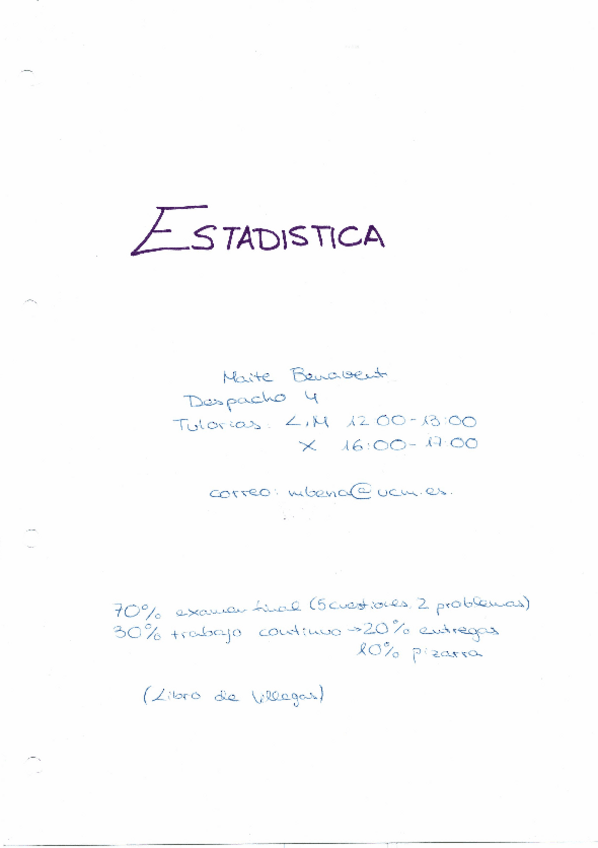 ESTADISTICA
Maite Benavent
Despacho 4
Tutorias: L,M 12:00-13:00
X 16:00-17:00
correo: mbena@ucm.es.
70% examen final (5 cuestiones, 2 problemas)
30% trabajo continuo → 20% entregas
10% pizarra
(Libro de Villegas)